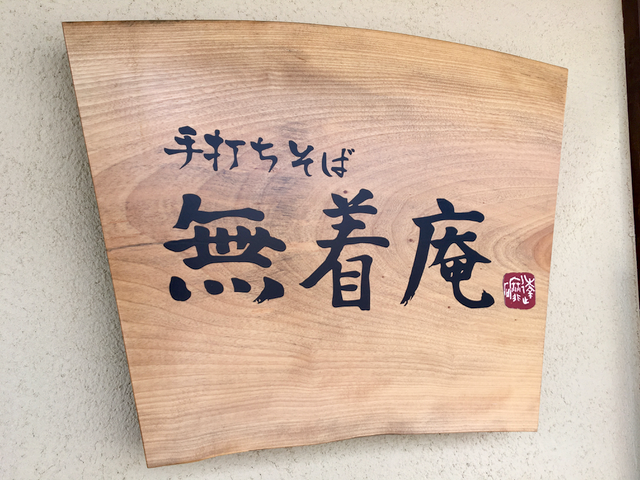 手打ちそば
無着庵